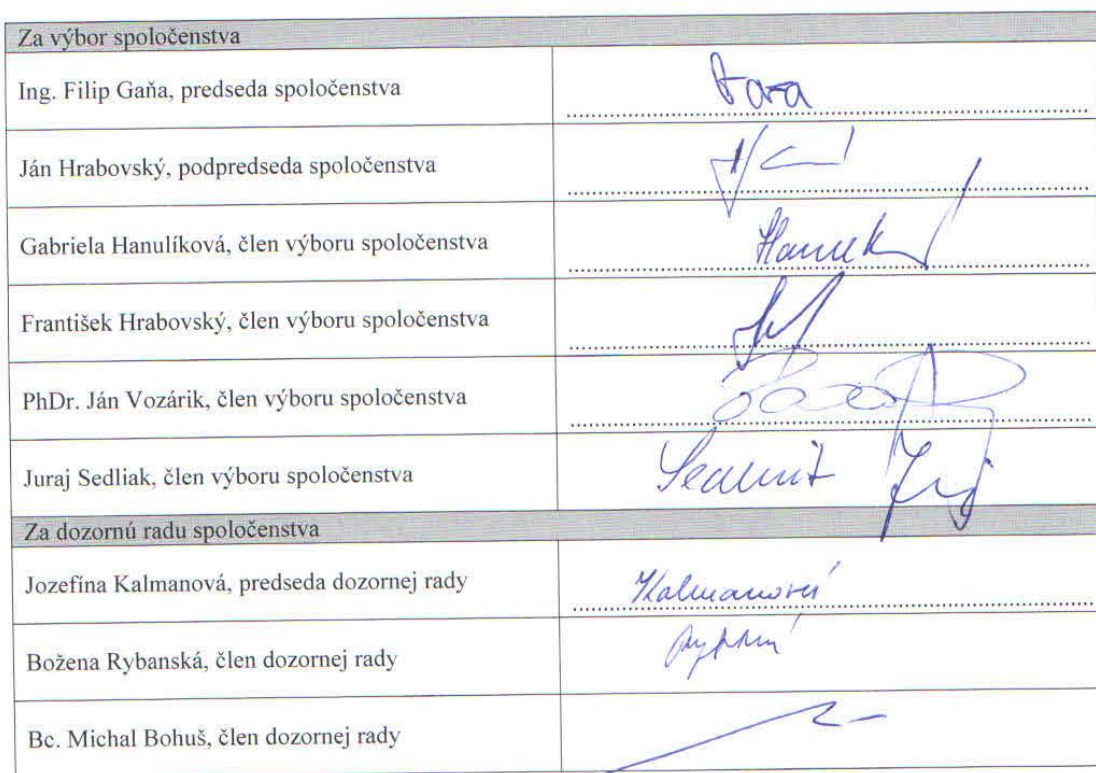 Za výbor spoločenstva
Ing. Filip Gaňa, predseda spoločenstva
Ján Hrabovský, podpredseda spoločenstva
Gabriela Hanulíková, člen výboru spoločenstva
František Hrabovský, člen výboru spoločenstva
PhDr. Ján Vozárik, člen výboru spoločenstva
Juraj Sedliak, člen výboru spoločenstva
Za dozornú radu spoločenstva
Jozefína Kalmanová, predseda dozornej rady Kalmanová
Božena Rybanská, člen dozornej rady
Bc. Michal Bohuš, člen dozornej rady